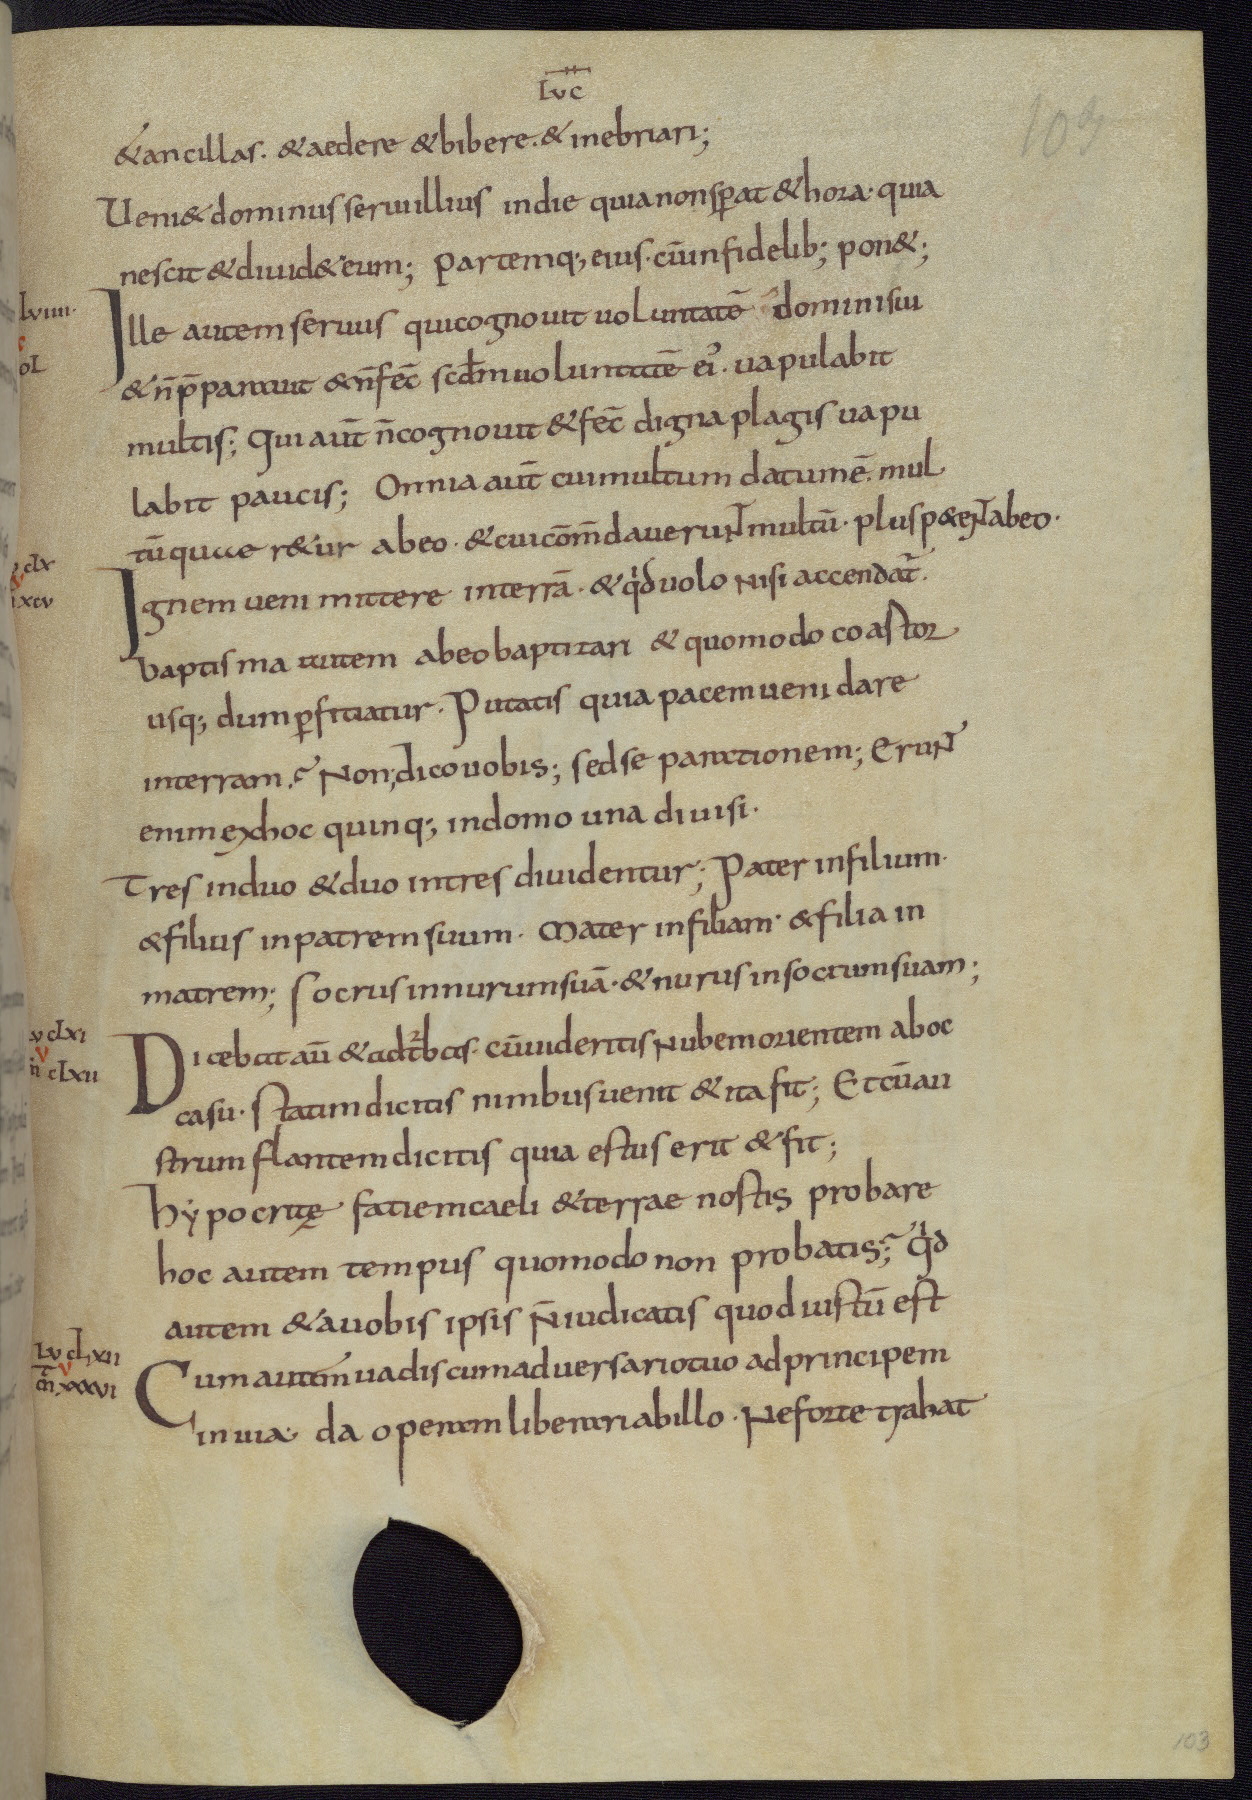 LVC
109
& ancillas. & aedere & bibere. & inebriari;
Ueni& dominus serui illius in die qua non sp̄at & hora. qua
nescit & diuid& eum; Partemq; eius. cū infidelib; pon&;
lviiii.
Ille autem seruus qui cognouit uoluntatē domini sui
ol
& n̄ p̄parauit & n̄ fec̄ scdm̄ uoluntatē ei'. uapulabit
multis; Qui aūt n̄ cognouit & fec̄ digna plagis uapu
labit paucis; Omnia aūt cui multum datum ē. mul
tū quaer&ur abeo. & cui com̄dauerunt multū. plus p&ent abeo.
clx
Ignem ueni mittere in terrā. & qid uolo nisi accendat̄.
xcv
baptisma autem abeo baptizari & quomodo coastor
usq; dum p̄fitiatur. Putatis quia pacem ueni dare
in terram? Non; dico uobis; sed separationem; Erunt
enim ex hoc quinq; in domo una diuisi.
Tres in duo & duo in tres diuidentur; Pater in filium.
& filius in patrem suum. Mater in filiam. & filia in
matrem; Socrus in nurum suā. & nurus in soctum suam;
v clxi
Dicebat aū & ad tʳbas. cū uideritis nubem orientem ab oc
v
n̄ clxii
casu. statim dicitis nimbus uenit & ita fit; Et cū au
strum flantem dicitis quia estus erit & fit;
hypocritę fatiem caeli & terrae nostis probare
hoc autem tempus quomodo non probatis;? qid
autem & a uobis ipsis n̄ iudicatis quod iustū est
Lv clxii
Cum autem uadis cum aduersario tuo ad principem
v
m̄ xxxvi
in uia. da operam liberari ab illo. Ne forte trahat
103